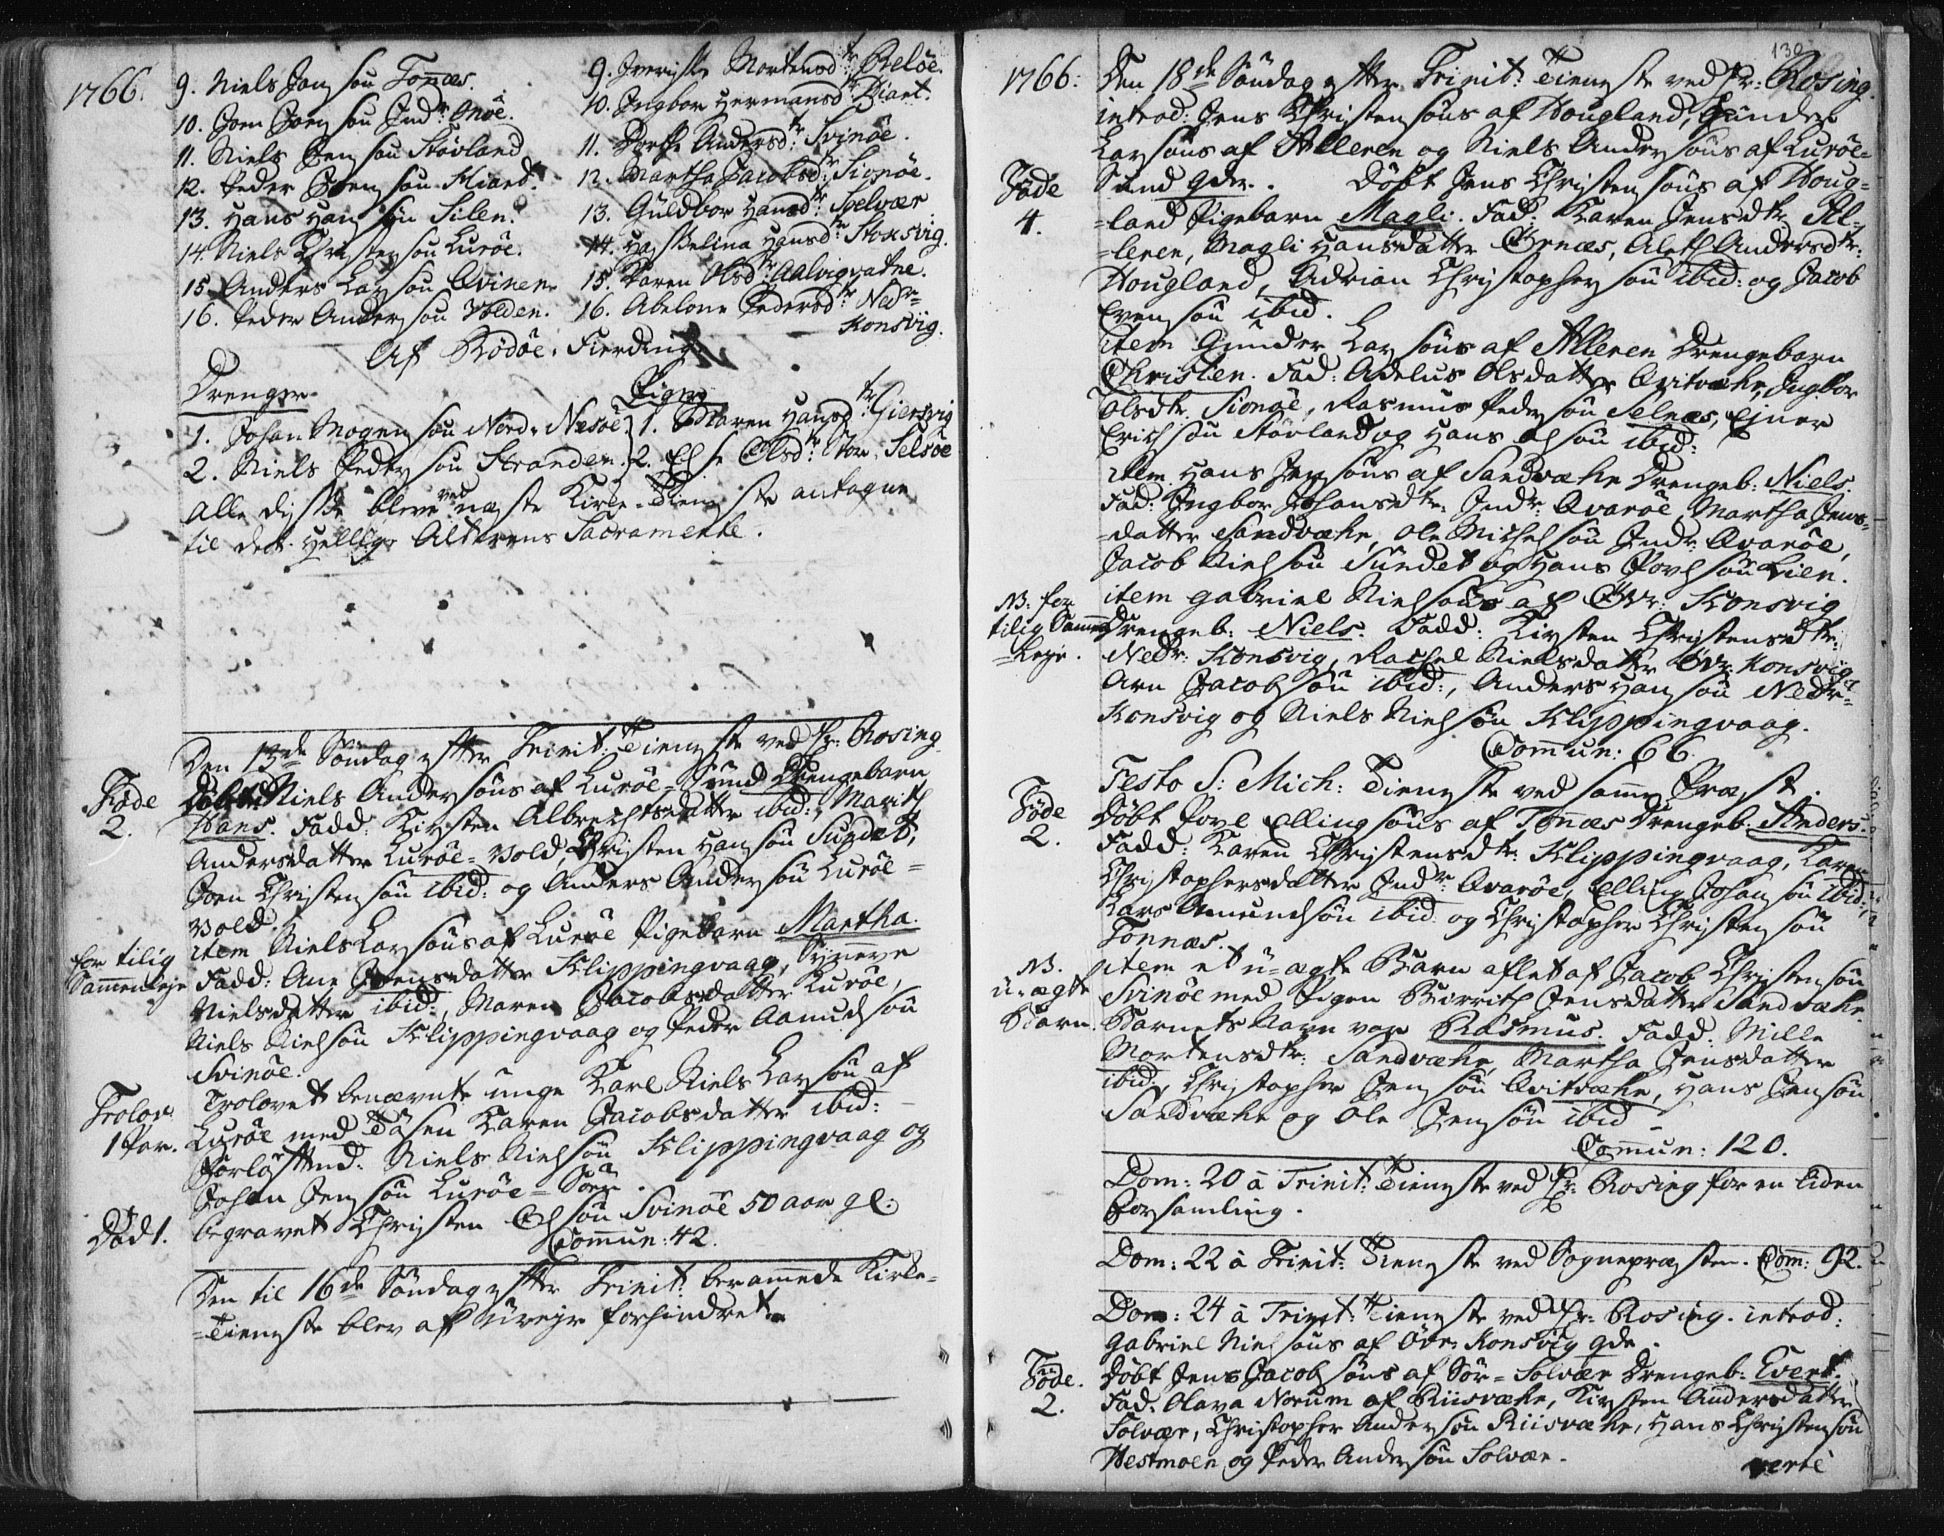 1766.
9. Niels Janssøn Tonnæs.
10. Joen Joenssøn Indr: Onøe.
11. Niels Jenssøn Støvland
12. Peder Joenssøn Hiart.
13. Hans Hanssøn Silen.
14. Niels Christenssøn Lurøe.
15. Anders Larssøn Qvinen.
16. Peder Anderssøn Volden.
9. Mortensdtr: Beløe.
10. Ingbor Hermansdtr: Hiart.
11. Dorthe Andersdtr: Svinøe.
12. Martha Jacobsdtr: Sionøe.
13. Guldbor Hansdtr: Selvær
14. Hansdtr: Stoksvig.
15. Karen Olsdtr: Aalvigvatne.
16. Abelone Pedersdtr: Nedr=
Konsvig.
Af Rødøe-Fierding
Drenge.
1. Johan Mogenssøn Nord-Nesøe.
2. Niels Pederssøn Stranden.
Piger
1. Maren Hansdtr: Giersvig
2. Else Olsdtr: Stor-Selsøe
Alle disse bleve ved næste Kirke-Tieneste antagne
til det Hellige Alterens Sacramente.
Den 13de Søndag efter Trinit: Tieneste ved Hr: Rosing
Føde
2.
Døbt Niels Anderssøns af Lurøe-Sund Drengebarn
Hans. Fadd: Kirsten Albrechtsdatter ibid:, Marith
Andersdatter Lurøe-Vold, Christen Hanssøn Sundet,
Joen Christenssøn ibid: og Anders Anderssøn Lurøe-
Vold.
for tilig
Sammenleje
item Niels Larssøns af Lurøe Pigebarn Martha.
Fadd: Ane Jensdatter Klippingvaag, Synneve
Nielsdatter ibid:, Maren Jacobsdatter Lurøe,
Niels Nielssøn Klippingvaag og Peder Aamundssøn
Svinøe.
Trolov:
1 Par.
Trolovet benævnte unge Karl Niels Larssøn af
Lurøe med Tøsen Karen Jacobsdatter ibid:
Forløftmd: Niels Nielssøn Klippingvaag og
Johan Jenssøn Lurøe-
Død 1.
begravet Christen Olssøn Svinøe 50 aar gl:
Commun: 42.
Den til 16de Søndag efter Trinit: berammede Kirke-
=Tieneste blev af Uvejr forhindret.
130
1766:
Den 18de Søndag efter Trinit: Tieneste ved Hr: Rosing.
introd: Jens Christenssøns af Hougland, Gunder
Larssøns af Alleren og Niels Anderssøns af Lurøe-
Føde
4.
Sund qdr. Døbt Jens Christenssøns af Houg-
=land Pigebarn Magli. Fad: Karen Jensdtr Al-
=leren, Magli Hansdatter Ørnæs, Aleth Andersdtr:
Hougland, Adrian Christopherssøn ibid: og Jacob
Evenssøn ibid.
item Gunder Larssøns af Alleren Drengebarn
Christen. Fad: Adelus Olsdatter Qvitvæhr, Ingbor
Olsdtr. Sionøe, Rasmus Pederssøn Selnæs, Ejner
Erichssøn Støvland og Hans Olssøn ibid:
item Hans Jenssøns af Sandvæhr Drengeb: Niels.
Fad: Ingbor Johansdtr. Indr: Qvarøe, Martha Jens-
=datter Sandvæhr, Ole Michelssøn Indr: Qvarøe,
Jacob Nielssøn Sundet og Hans Povelssøn Lien.
NB: for
tilig Sammen
=leje.
item Gabriel Nielssøns af Øvr: Konsvig
Drengeb: Niels. Fadd: Kirsten Christensdtr:
Nedr: Konsvig, Rachel Nielsdatter Øvr: Konsvig,
Arn Jacobssøn ibid:, Anders Hanssøn Nedr-
Konsvig og Niels Nielssøn Klippingvaag.
Commun: 66.
Festo S: Mich: Tieneste ved samme Præst.
Føde
2.
Døbt Povel Ellingssøns af Tonnæs Drengeb. Anders.
Fadd: Karen Christensdtr: Klippingvaag, Karen
Christophersdatter Indr: Qvarøe, Elling Johanssøn ibid:,
Lars Amundssøn ibid og Christopher Christenssøn
Tonnæs.
NB.
u-ægte
Barn.
item et u-ægte Barn aflet af Jacob Christenssøn
Svinøe med Pigen Birrith Jensdatter Sandvæhr.
Barnets Navn var Rasmus. Fadd: Mille
Mortensdtr: Sandvæhr, Martha Jensdatter
ibid, Christopher Jenssøn Qvitvæhr, Hans Jenssøn
Sandvæhr og Ole Jenssøn ibid.
Commun: 120.
Dom: 20 à Trinit: Tieneste ved Hr: Rosing for en liden
Forsamling.
Dom: 22 à Trinit: Tieneste ved Sognepræsten. Com: 92.
Dom: 24 à Trinit: Tieneste ved Hr: Rosing. introd:
Gabriel Nielssøns af Øvr: Konsvig qde.
Føde.
2.
Døbt Jens Jacobssøns af Sør-Solvær Drengeb: Evert.
Fad. Olava Norum af Riisvæhr, Kirsten Andersdatter
Solvær, Christopher Anderssøn Riisvæhr, Hans Christenssøn
Hestmoen og Peder Anderssøn Solvær.
verte